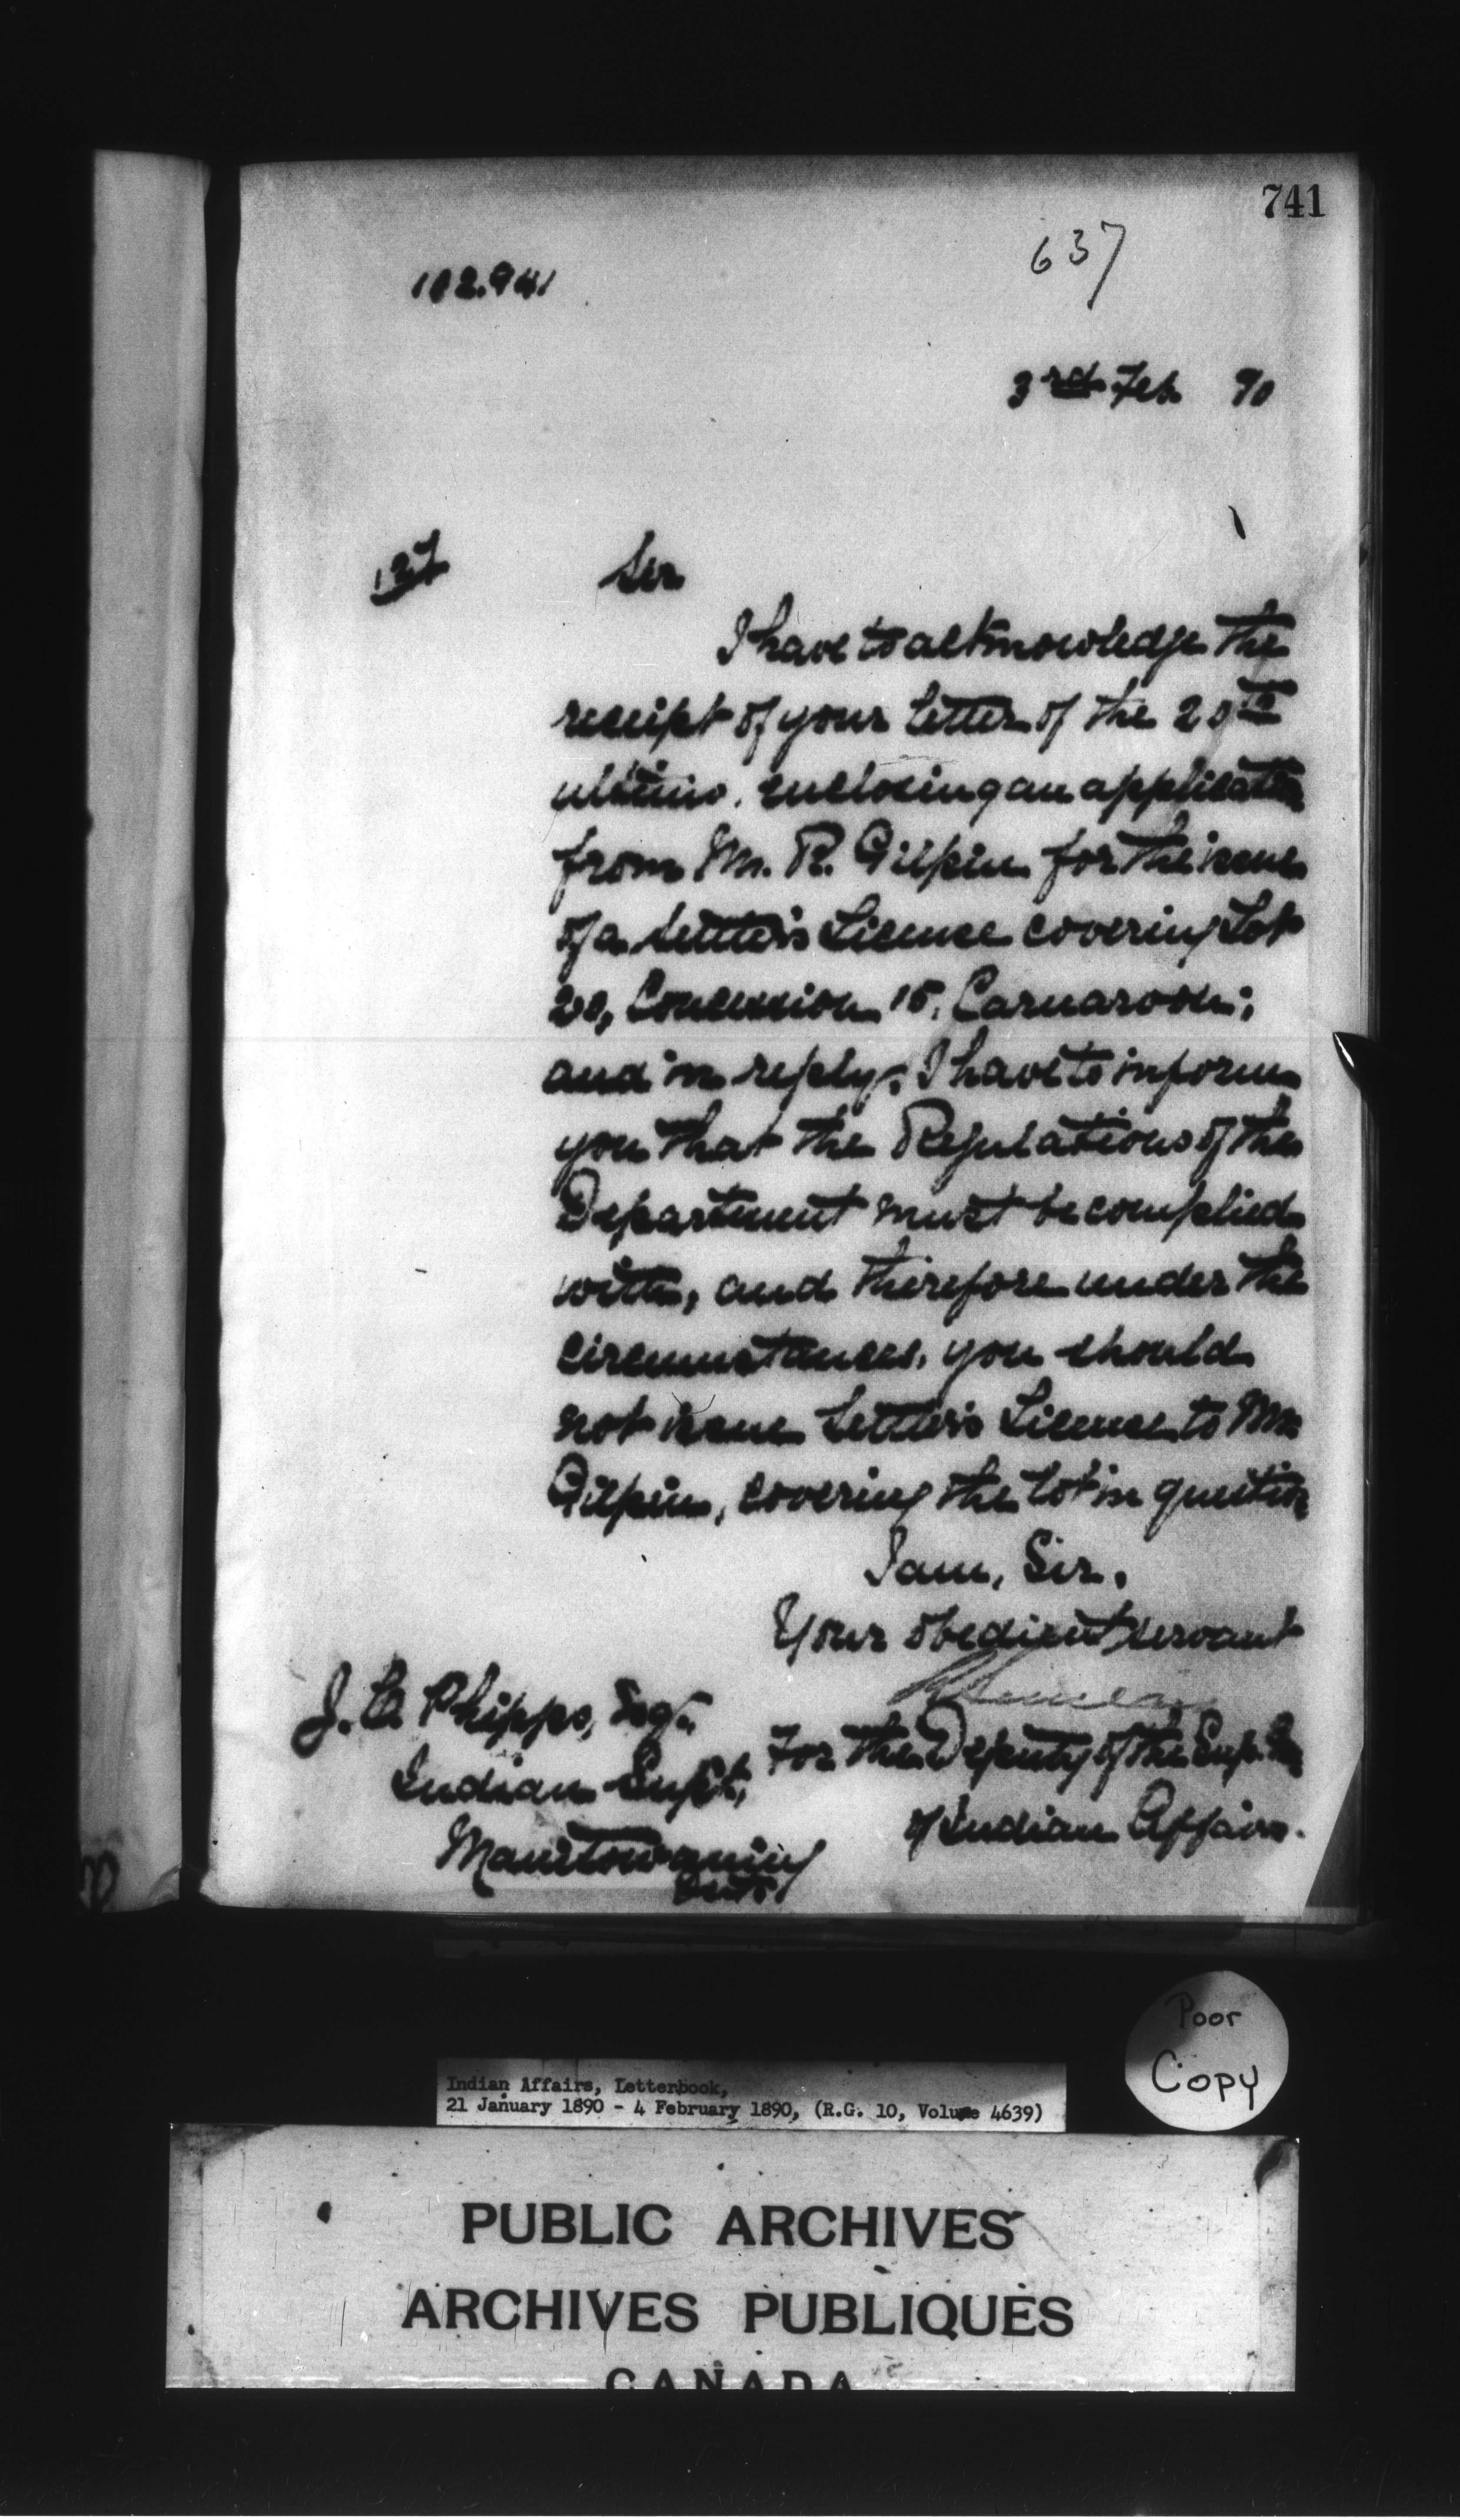 741
637
102.941
3rd Feb. 90
127
Sir
I have to acknowledge the
receipt of your letter of the 20th
ultimo, enclosing an application
from Mr. R. Gilpin for the issue
of a Settler's License covering Lot
20, Concession 15, Carnarvon;
and in reply, I have to inform
you that the Regulations of the
Department must be complied
with, and therefore under the
circumstances, you should
not issue Settler's License to Mr.
Gilpin, covering the lot in question
I am, Sir.
Your obedient servant
For the Deputy of the Sup. Gn
of Indian Affairs.
J. C. Phipps, Esq.
Indian Supt.,
Manitowaning
Ont.
Poor
Copy
Indian Affairs, Letterbook,
21 January 1890 - 4 February 1890, (R.G. 10, Volume 4639)
PUBLIC ARCHIVES
ARCHIVES PUBLIQUES
CANADA